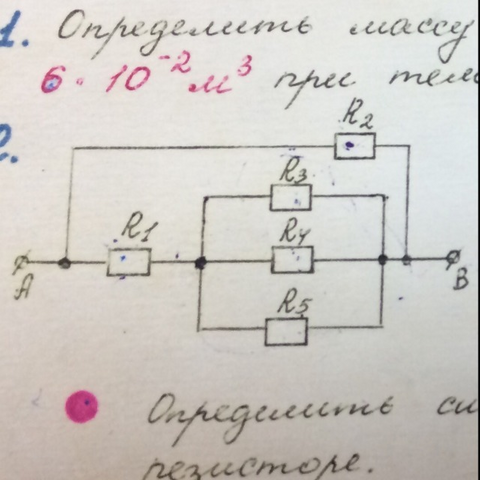 1. Определить массу
6 · 10⁻² м³ при
2.
R2
R3
R1
R4
A
B
R5
Определить
резисторе.